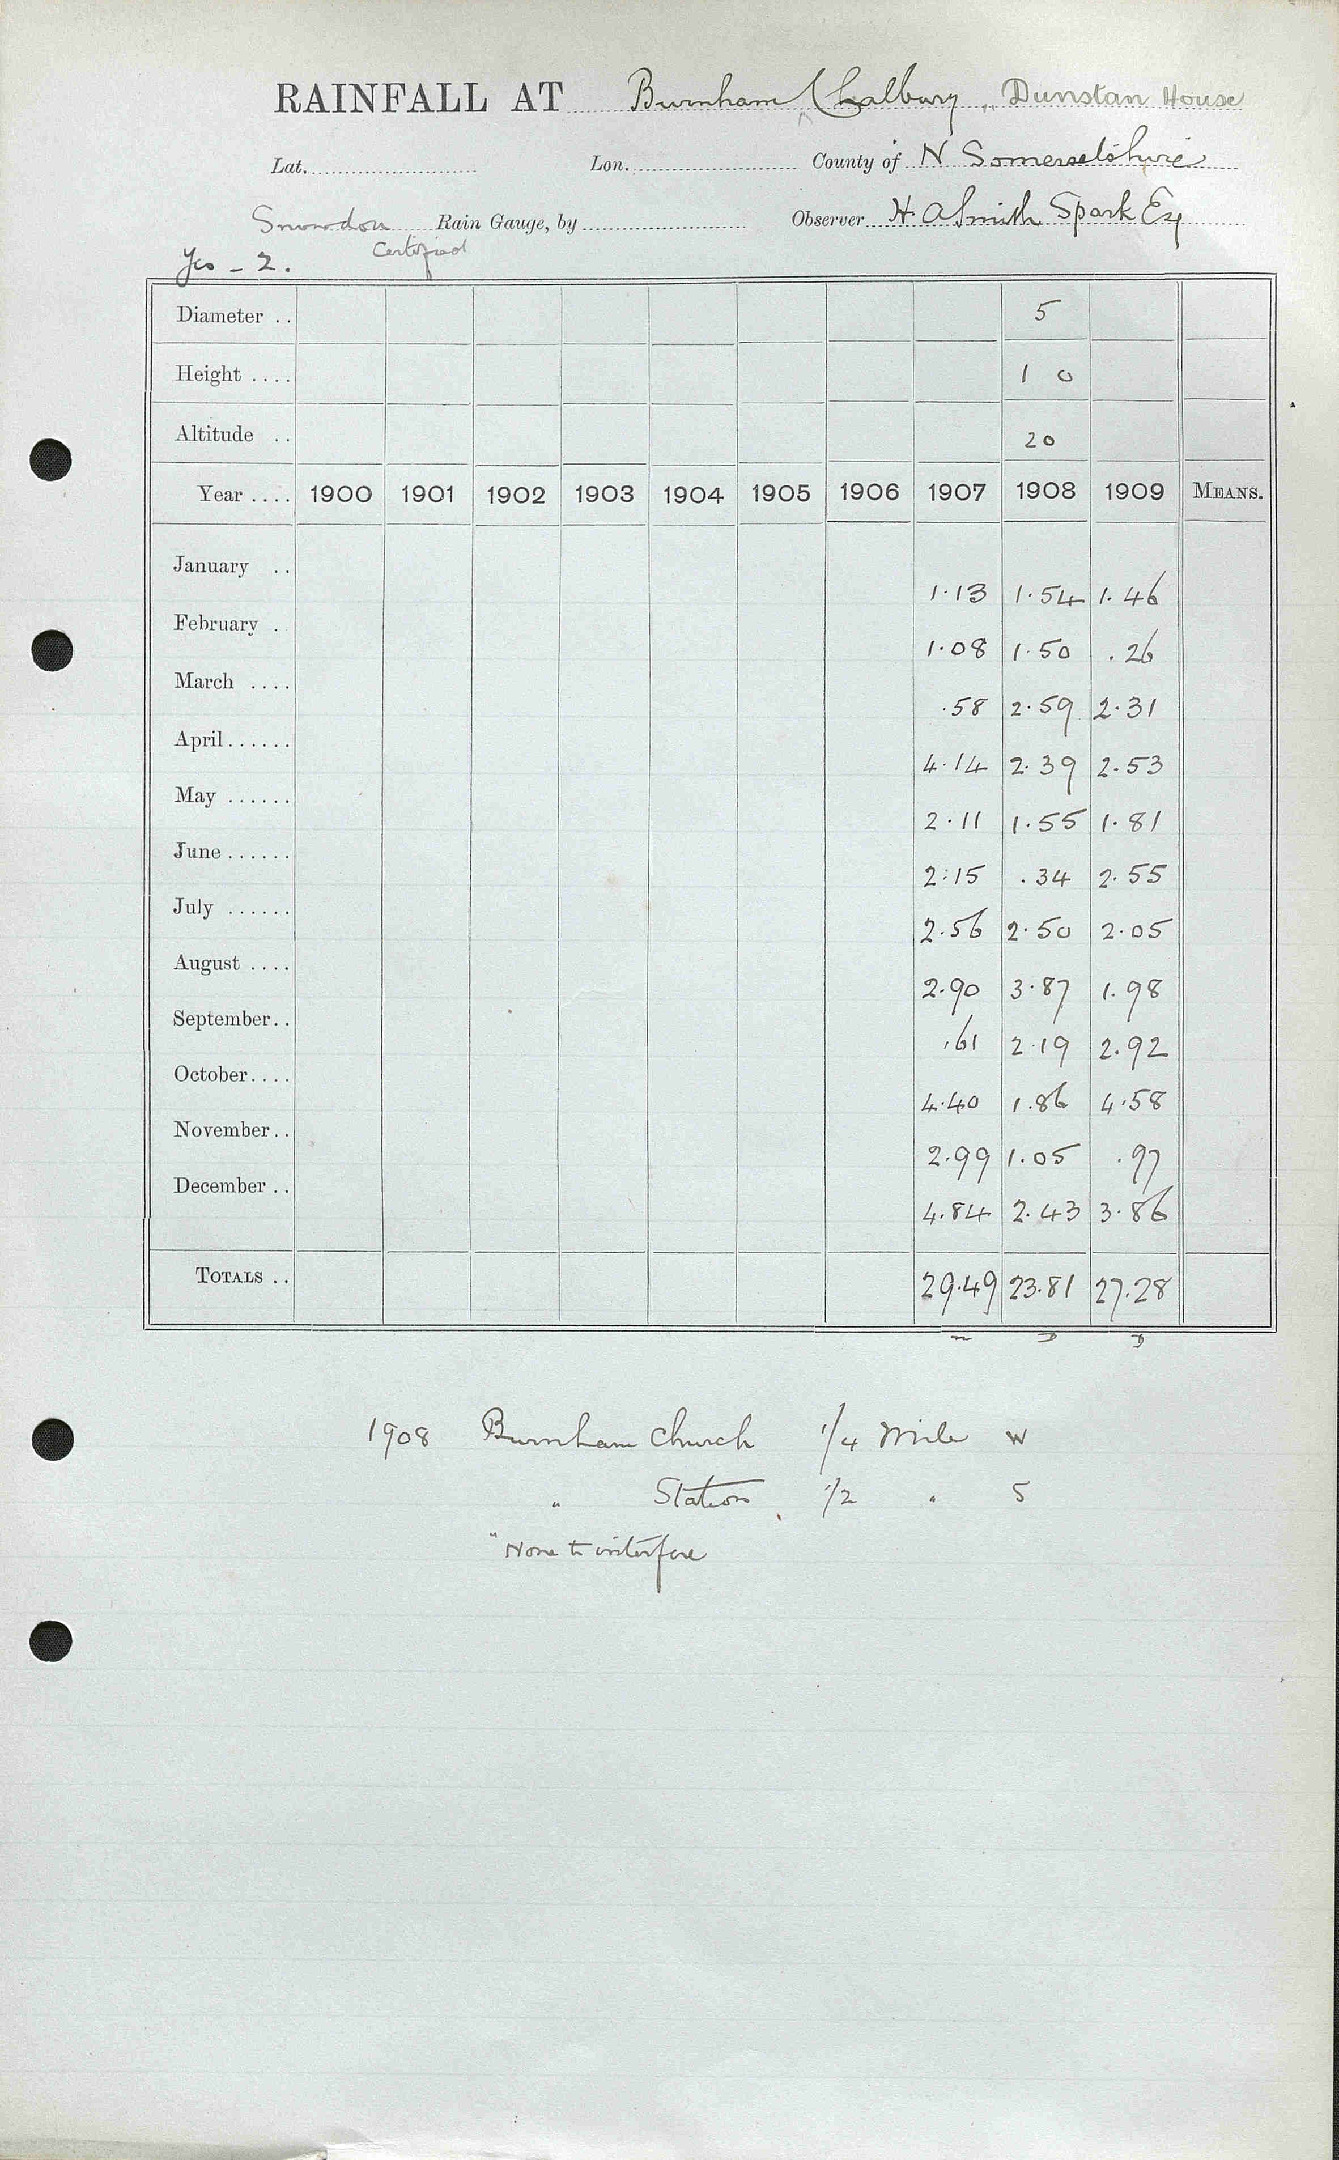 RAINFALL AT Burnham Chalbury, Dunstan House
Lat. Lon. County of N Somersetshire
Snowdon Rain Gauge, by Observer H. A Smith Spark Esq
Yes - 2. Certified
Diameter .. 5
Height .... 1 0
Altitude .. 20
Year .... 1900 1901 1902 1903 1904 1905 1906 1907 1908 1909 MEANS.
January .. 1.13 1.54 1.46
February . 1.08 1.50 .26
March .... .58 2.59 2.31
April...... 4.14 2.39 2.53
May ...... 2.11 1.55 1.81
June...... 2.15 .34 2.55
July ...... 2.56 2.50 2.05
August .... 2.90 3.87 1.98
September.. .61 2.19 2.92
October.... 4.40 1.86 4.58
November.. 2.99 1.05 .97
December .. 4.84 2.43 3.86
TOTALS .. 29.49 23.81 27.28
1908 Burnham Church 1/4 Mile W
" Station 1/2 " S
"None to interfere